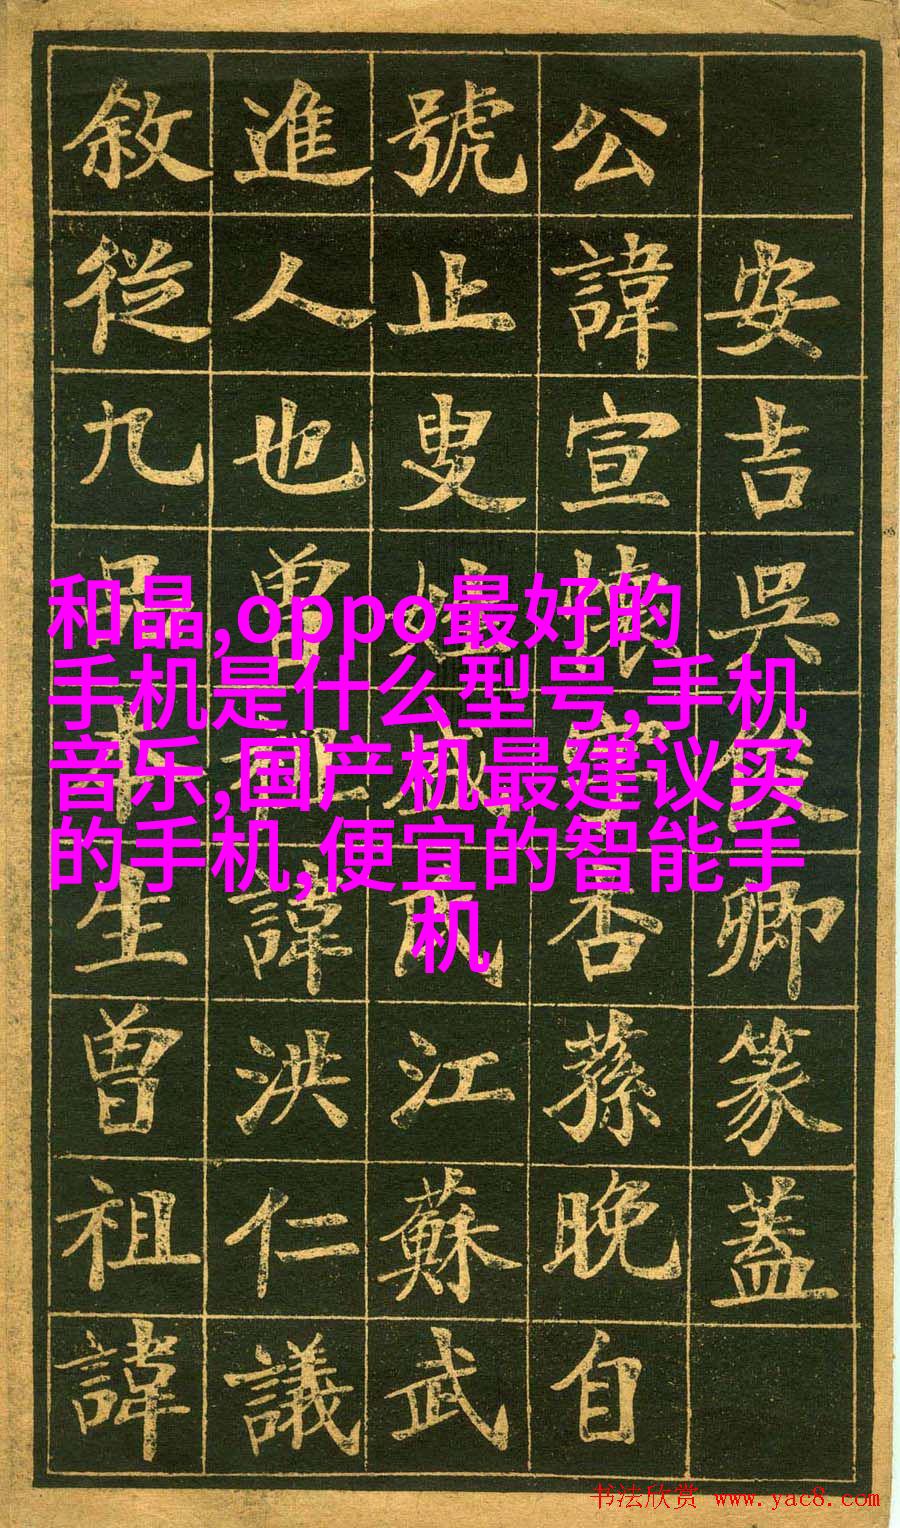 和晶,oppo最好的
手机是什么型号,手机
音乐,国产机最建议买
的手机,便宜的智能手
机
安吉吳俊卿篆蓋
公諱宣懷字杏蓀晚自
號止叟姓盛氏江蘇武
進人也曾諱洪仁議
敘從九品生曾祖諱
书法欣赏 www.yac8.com